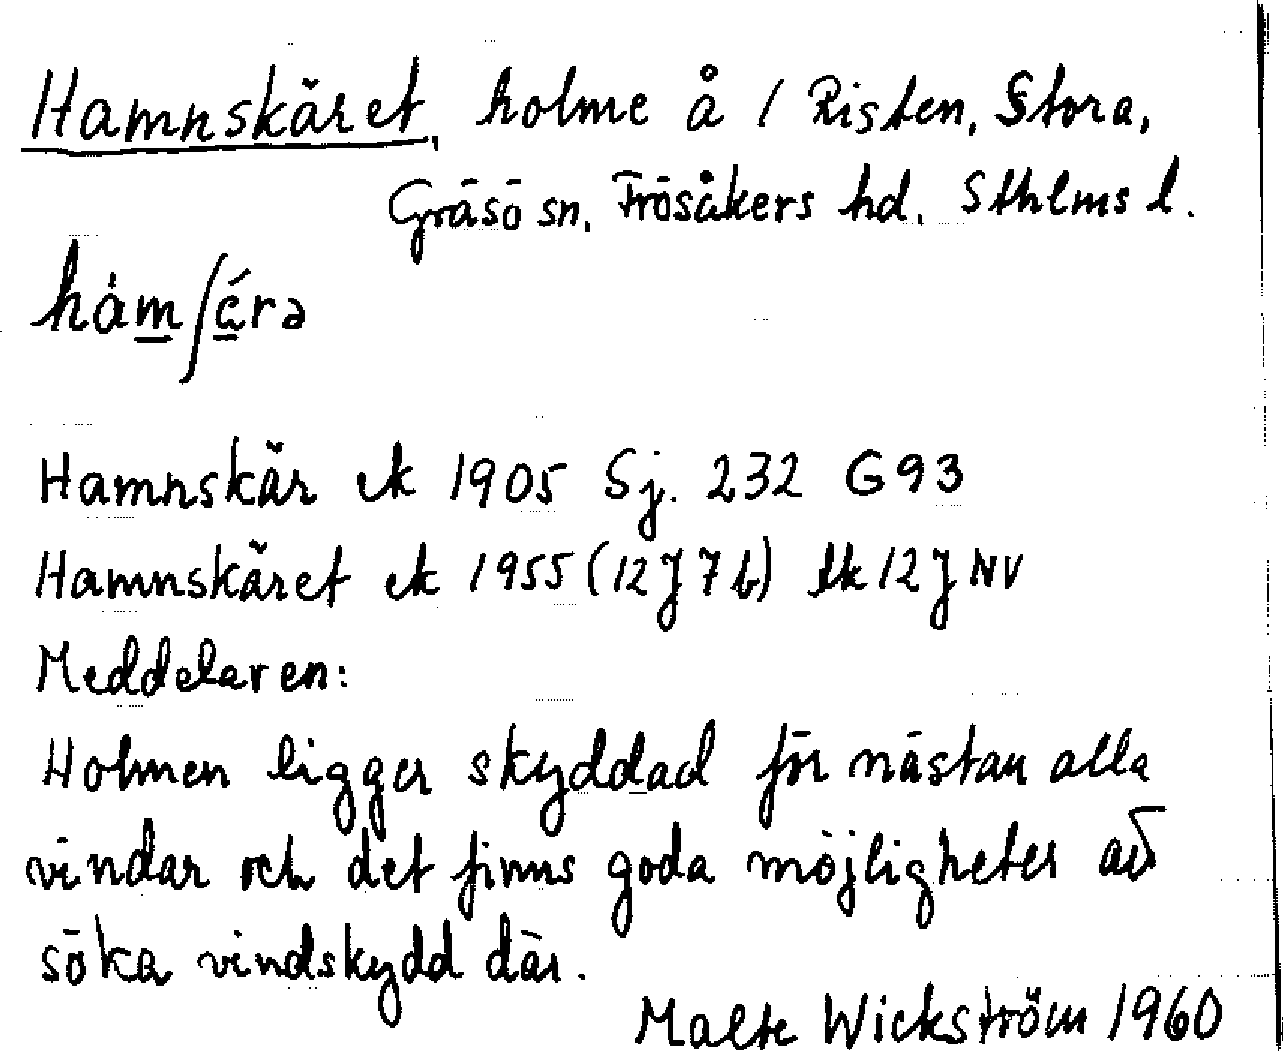 Hamnskäret, holme å / Risten, Stora,
Gräsö sn, Frösåkers hd, Sthlms l.
håmʃǽrə
Hamnskär ek 1905 Sj. 232 G93
Hamnskäret ek 1955 (12J7b) lk 12J NV
Meddelaren:
Holmen ligger skyddad för nästan alla
vindar och det finns goda möjligheter att
söka vindskydd där.
Malte Wickström 1960